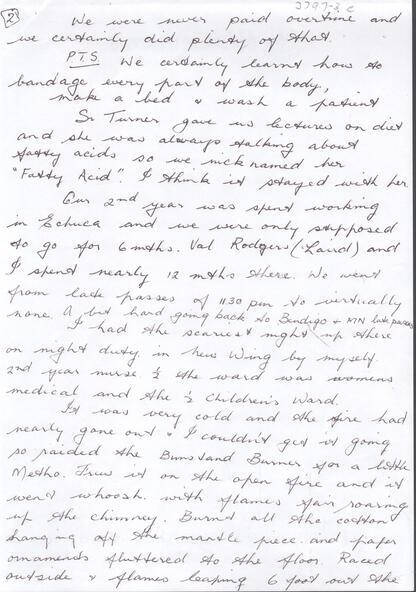 2
3797-2c
We were never paid overtime and
we certainly did plenty of that.
P.T.S. We certainly learnt how to
bandage every part of the body,
make a bed & wash a patient
Sr Turner gave us lectures on diet
and she was always talking about
fatty acids so we nick named her
"Fatty Acid". I think it stayed with her
Our 2nd year was spent working
in Echuca and we were only supposed
to go for 6 mths. Val Rodgers (Laird) and
I spent nearly 12 mths there. We went
from late passes of 11.30 pm to virtually
none. A bit hard going back to Bendigo & MN late passes
I had the scariest night up there
on night duty in New Wing by myself
2nd year nurse ½ the ward was womens
medical and the ½ Children's Ward.
It was very cold and the fire had
nearly gone out & I couldn't get it going
so raided the Bunsand Burner for a little
Metho. Trew it on the open fire and it
went whoosh. with flames roaring
up the chimney. Burnt all the cotton
hanging off the mantle piece. and paper
ornaments fluttered to the floor. Raced
outside & flames leaping 6 foot out the